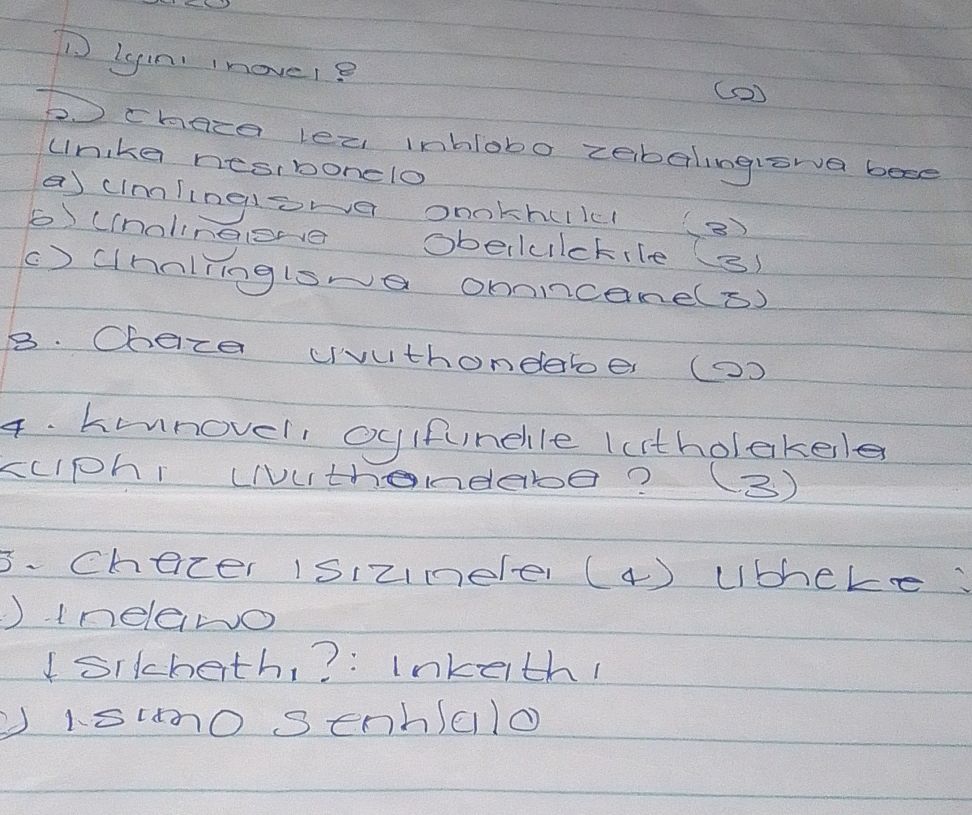 1.) Iyini inoveli?
(2)
2.) Chaza lezi inhlobo zabalingiswa bese
unika nesibonelo
a) Umlingiswa omkhulu (3)
b) Umlingiswa obalulekile (3)
c) Umlingiswa omncane (3)
3. Chaza uvuthondaba (2)
4. Kwinoveli oyifundile lutholakala
kuphi uvuthondaba? (3)
5. Chaza isizinda (4) ubheke:
) Indawo
Isikhathi?: Inkathi
) isimo senhlalo